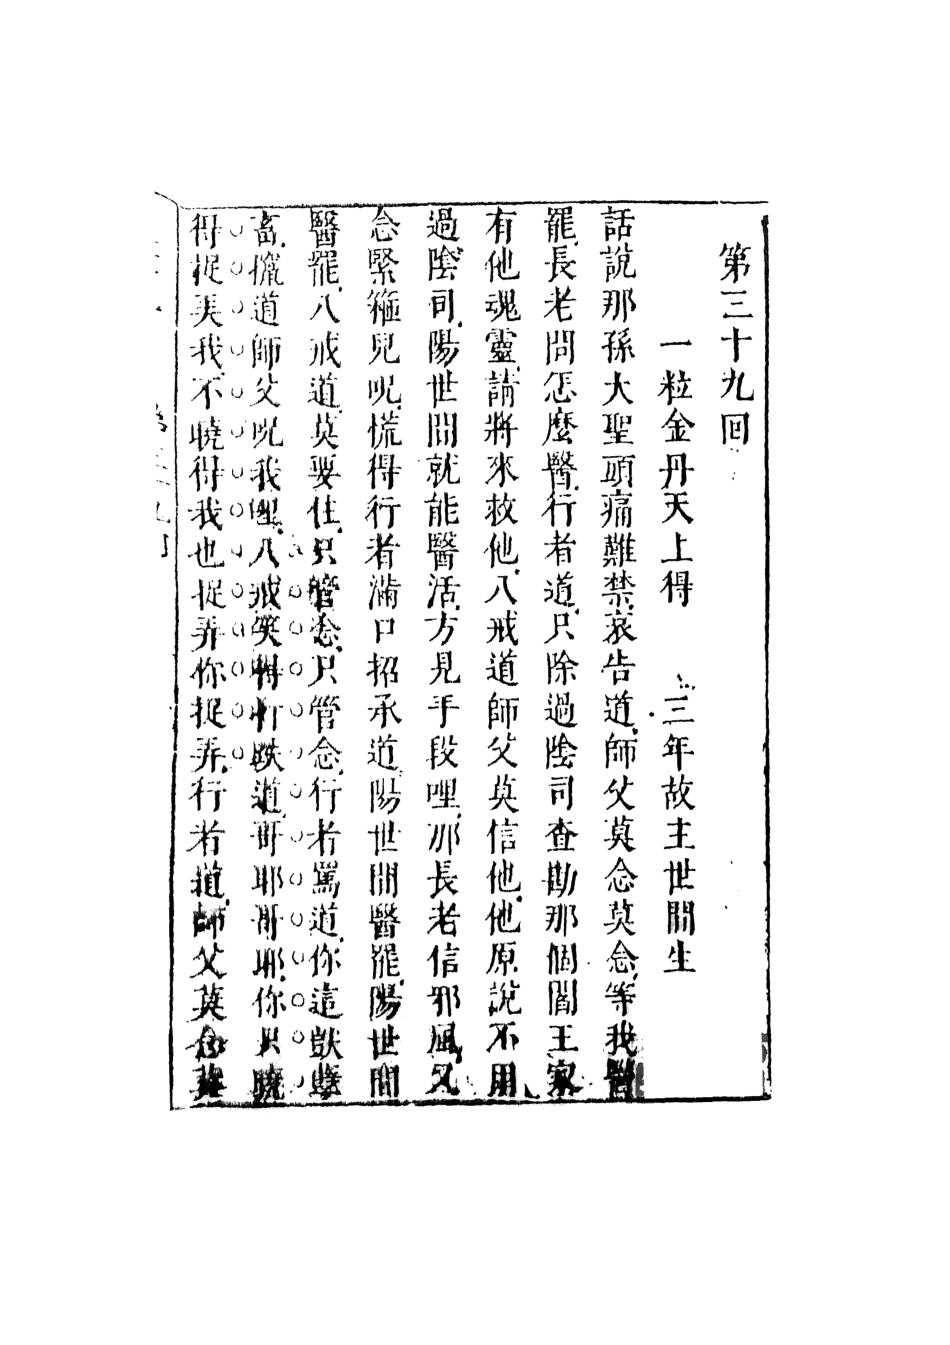 第三十九回
一粒金丹天上得　三年故主世間生
話說那孫大聖頭痛難禁哀告道師父莫念莫念等我醫
罷長老問怎麼醫行者道只除過陰司查勘那個閻王家
有他魂靈請將來救他八戒道師父莫信他他原說不用
過陰司陽世間就能醫活方見手段哩那長老信邪風又
念緊箍兒呪慌得行者滿口招承道陽世間醫罷陽世間
醫罷八戒道莫要住只管念只管念行者罵道你這獃孽
畜攛道師父呪我哩八戒笑得打跌道哥耶哥耶你只曉
得捉弄我不曉得我也捉弄你捉弄行者道師父莫念莫